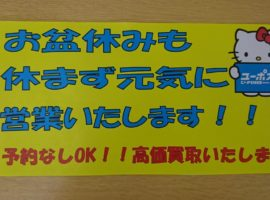 お盆休みも
休まず元気に
営業いたします！！
予約なしOK！！高価買取いたしま